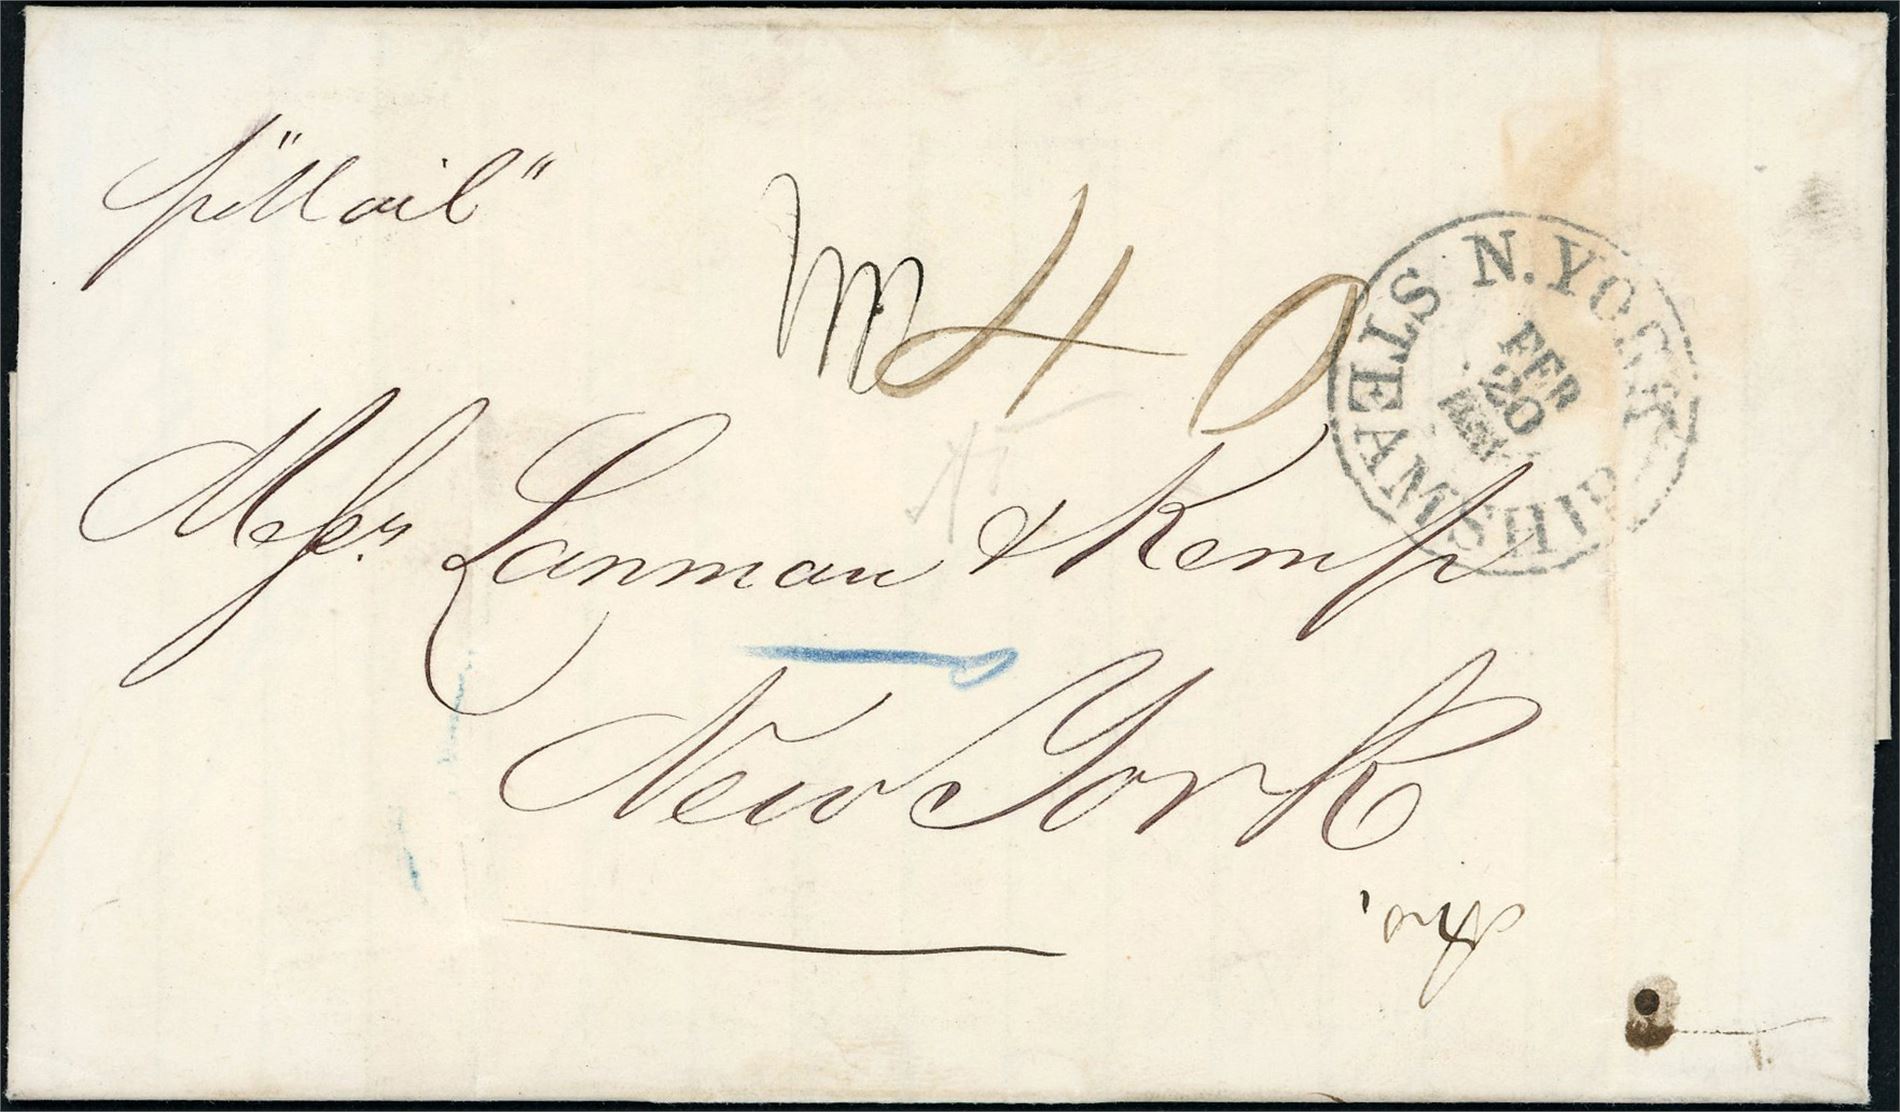 pr "Mail"
40
N. YORK STEAMSHIP
FEB
20
Messrs Lanman & Kemp
New York